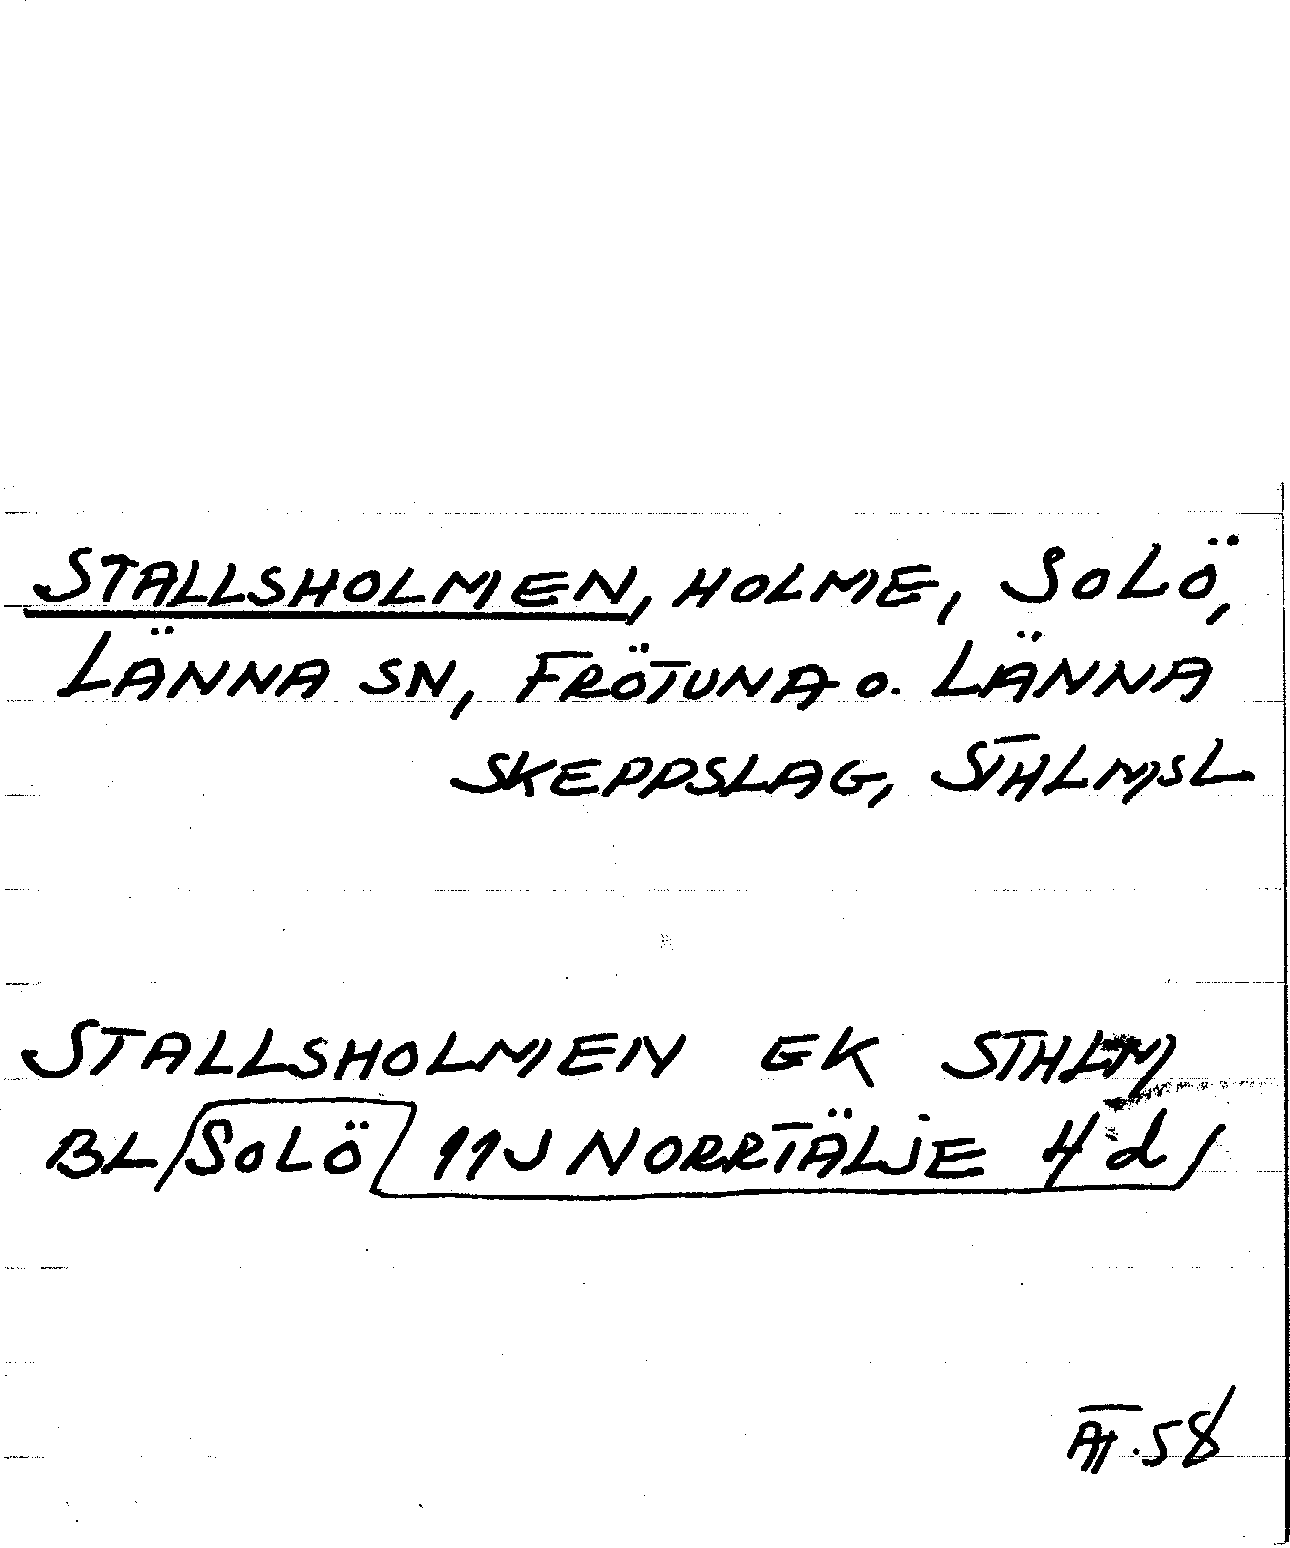 STALLSHOLMEN, HOLME, SOLÖ,
LÄNNA SN, FRÖTUNA o. LÄNNA
SKEPPSLAG, STHLMSL
STALLSHOLMEN EK STHLM
BL/SOLÖ/ 11J NORRTÄLJE 4 d/
AT. 58